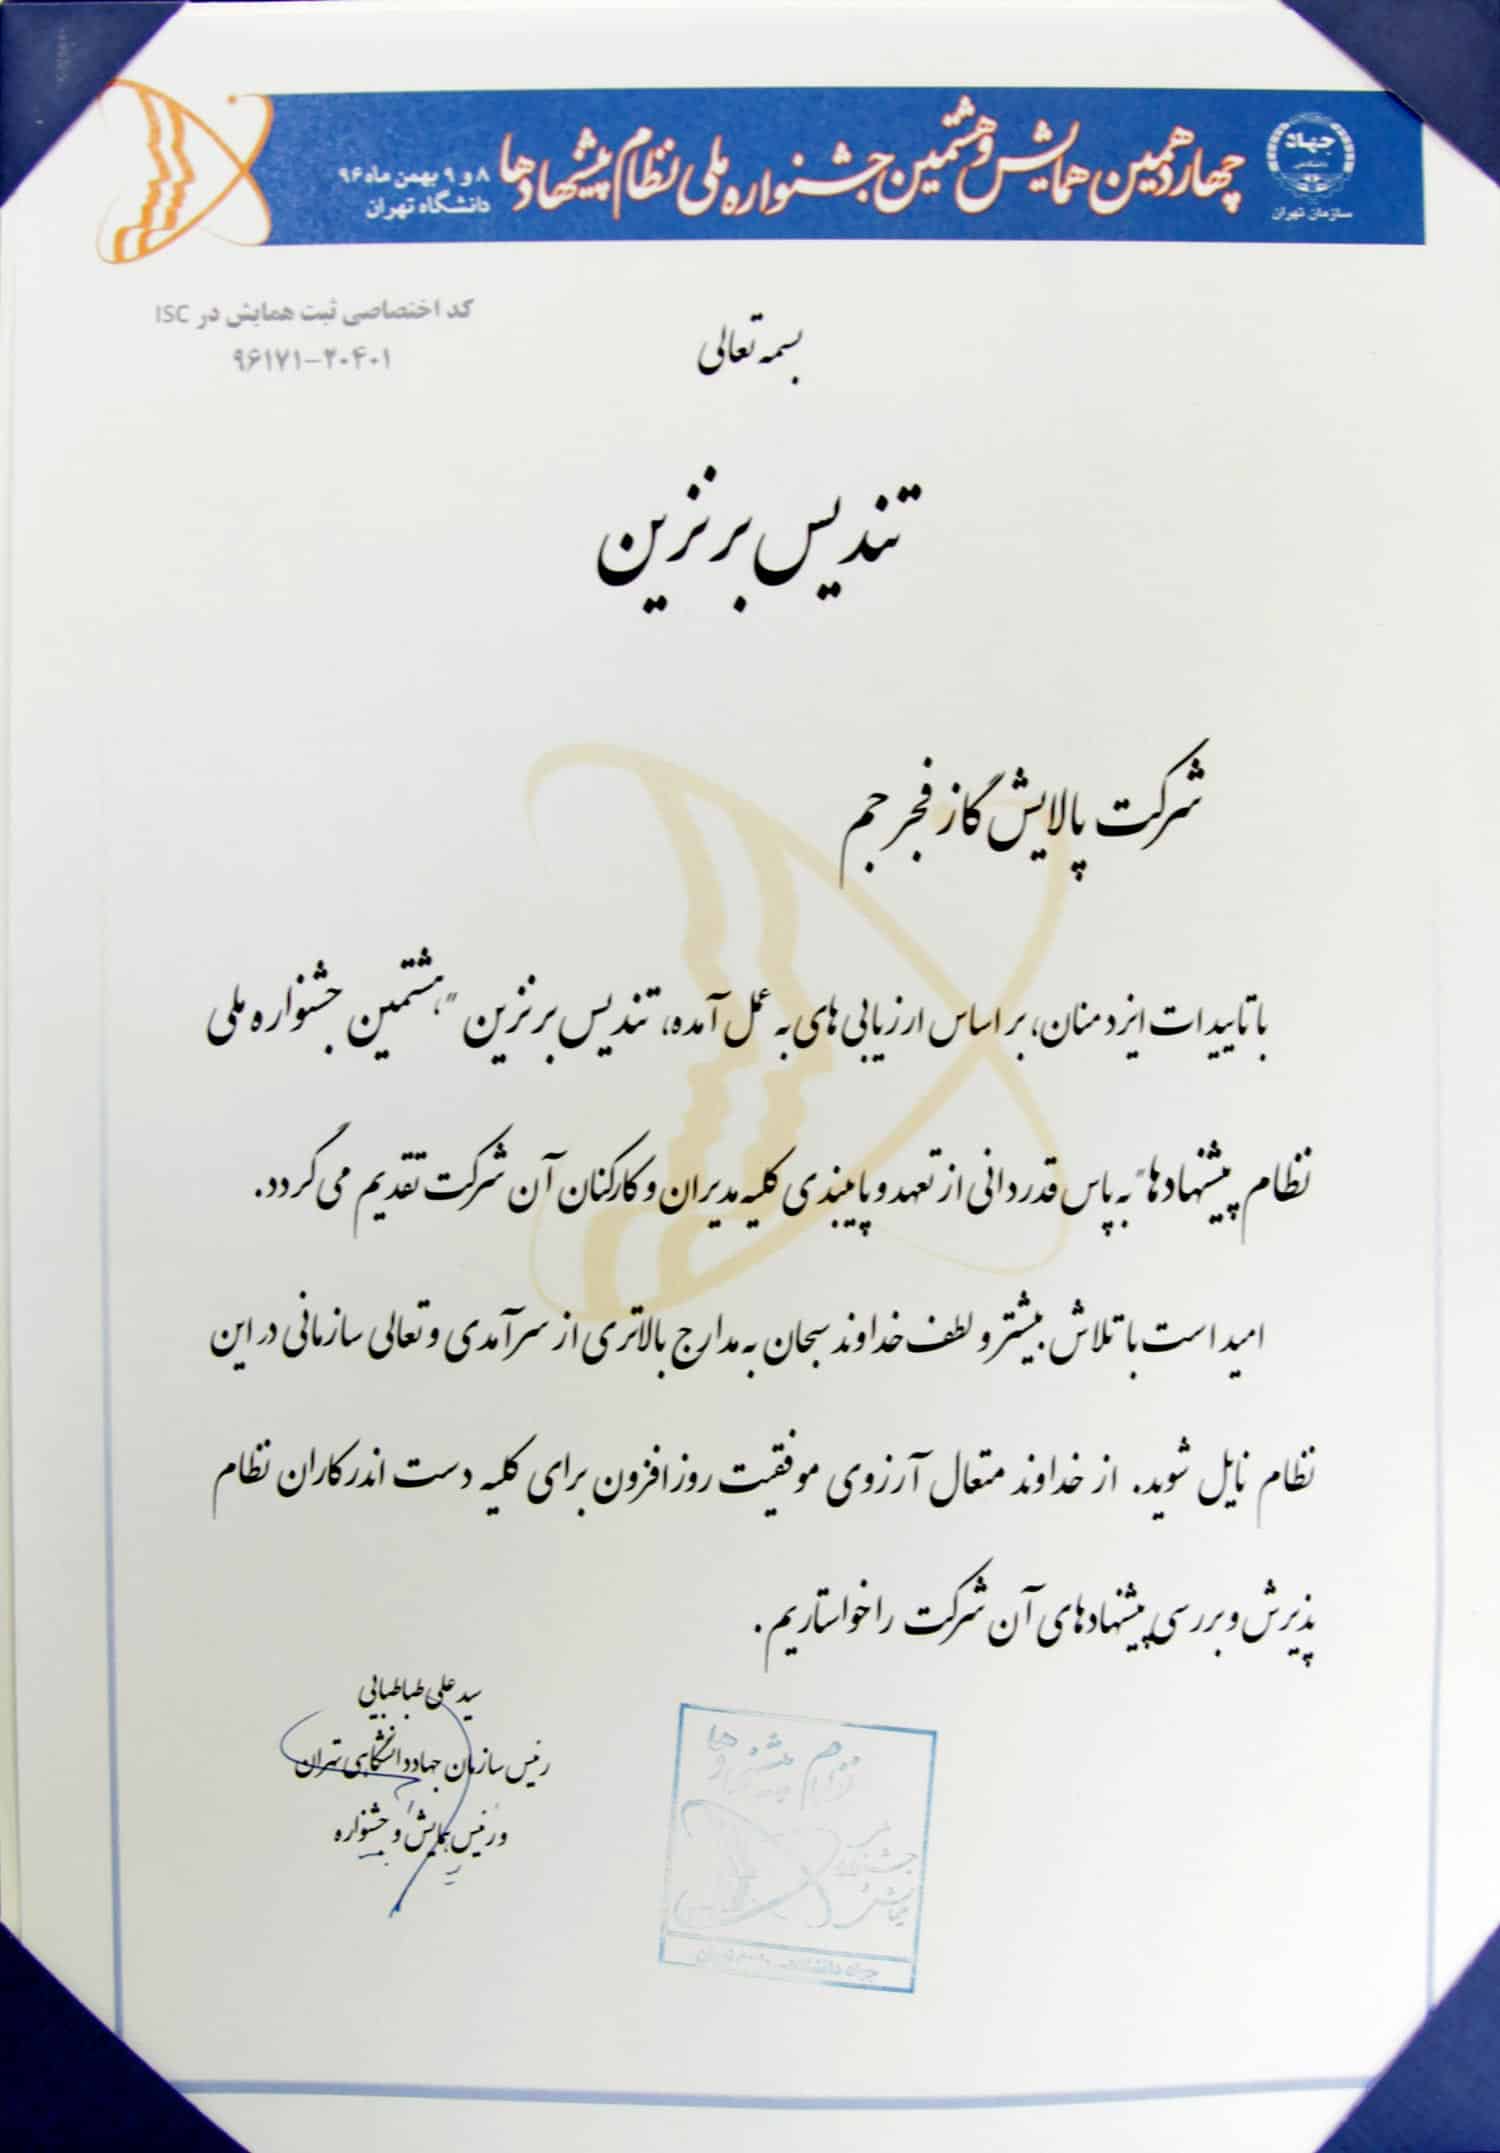 چهاردهمین همایش و هشتمین جشنواره ملی نظام پیشنهادها
۸ و ۹ بهمن ماه ۹۶
دانشگاه تهران
جهاد
سازمان تهران
کد اختصاصی ثبت همایش در ISC
۹۶۱۷۱-۲۰۴۰۱
بسمه تعالی
تندیس برنزین
شرکت پالایش گاز فجر جم
با تاییدات ایزد منان، بر اساس ارزیابی های به عمل آمده، تندیس برنزین "هشتمین جشنواره ملی
نظام پیشنهادها" به پاس قدردانی از تعهد و پایبندی کلیه مدیران و کارکنان آن شرکت تقدیم می گردد.
امید است با تلاش بیشتر و لطف خداوند سبحان به مدارج بالاتری از سرآمدی و تعالی سازمانی در این
نظام نایل شوید. از خداوند متعال آرزوی موفقیت روز افزون برای کلیه دست اندرکاران نظام
پذیرش و بررسی پیشنهادهای آن شرکت را خواستاریم.
سید علی طباطبایی
رئیس سازمان جهاددانشگاهی تهران
و رئیس همایش و جشنواره